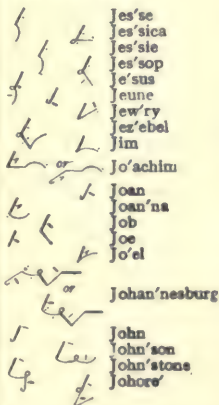 Jes'se
Jes'sica
Jes'sie
Jes'sop
Je'sus
Jeune
Jew'ry
Jez'ebel
Jim
or Jo'achim
Joan
Joan'na
Job
Joe
Jo'el
or Johan'nesburg
John
John'son
John'stone
Johore'